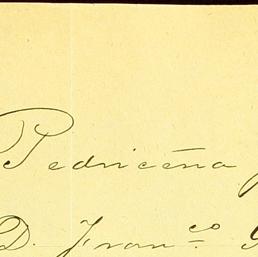 Pedriceña
D. Fran.co